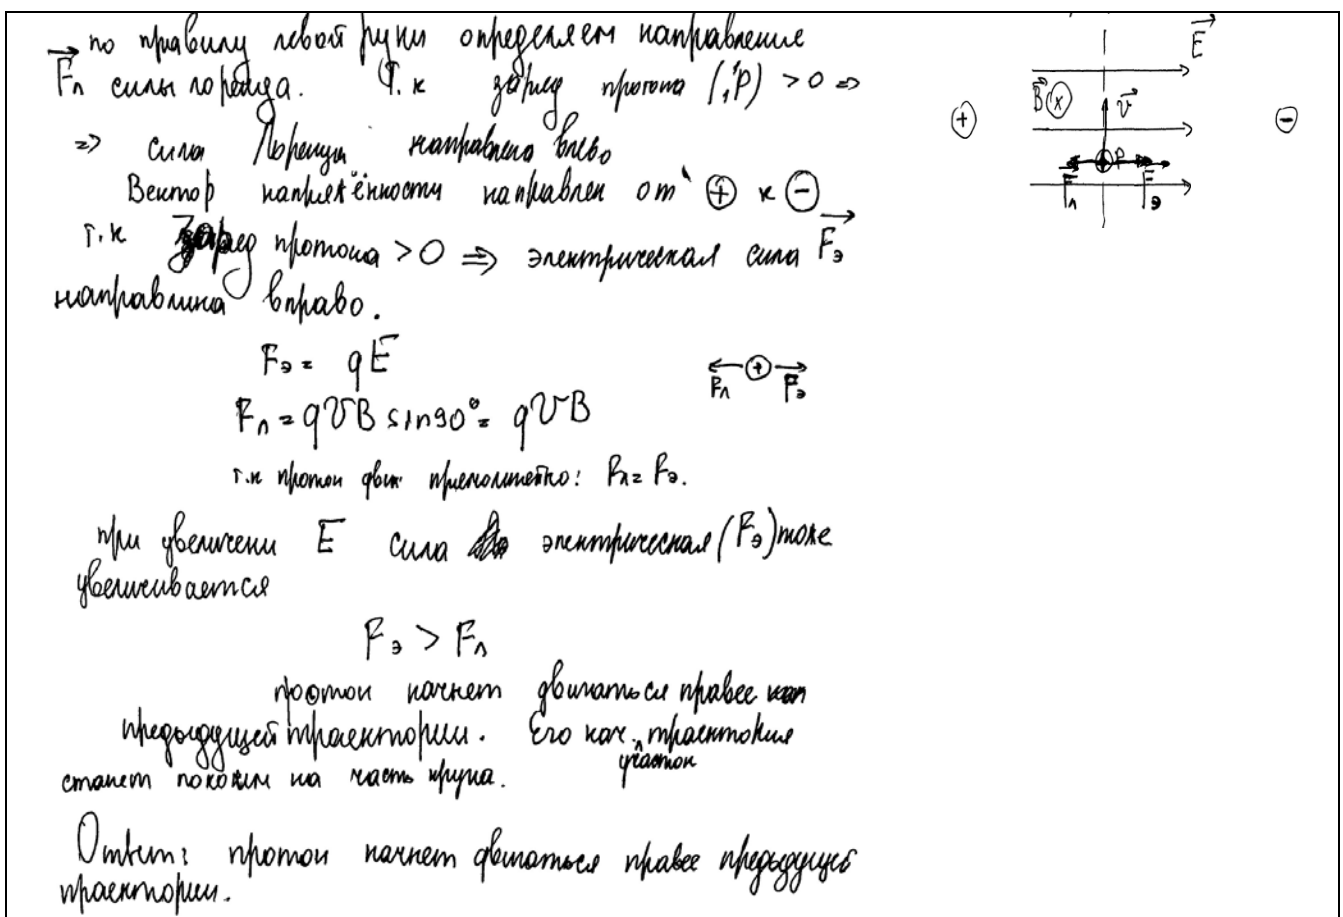 по правилу левой руки определяем направление
F⃗л силы лоренца. Т.к заряд протона (¹₁P) > 0 =>
=> сила Лоренца направлена влево
Вектор напряжённости направлен от ⊕ к ⊖
т.к заряд протона > 0 => электрическая сила F⃗э
направлина вправо.
Fэ = qE
Fл = qVB sin90° = qVB
т.к протон движ прямолинейно: Fл = Fэ.
при увеличени E сила электрическая (Fэ) тоже
увеличивается
Fэ > Fл
протон начнет двигаться правее
предыдущей траектории. Его нач. участок траектории
станет похожим на часть круга.
Ответ: протон начнет двигаться правее предыдущей
траектории.
E⃗
B⃗ ⊗ v⃗
⊕ ⊖
p
Fл Fэ
⊕
Fл Fэ